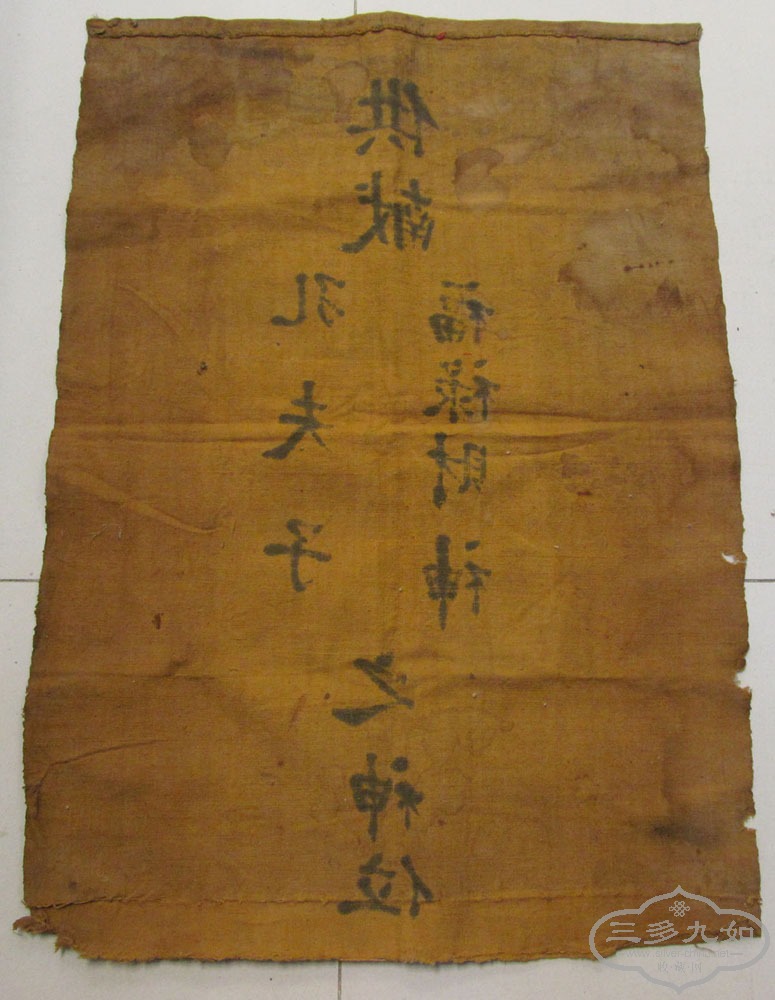 供献
孔夫子
福禄財神
之神位
三多九如